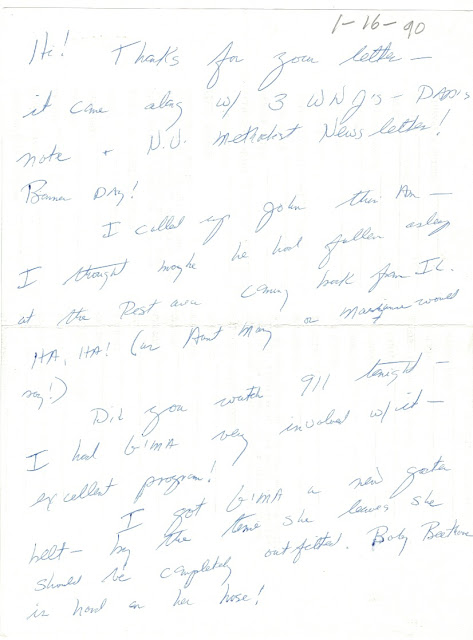 1-16-90
Hi! Thanks for your letter -
it came along w/ 3 WNJ's - DAD's
note + N.J. Methodist Newsletter!
Banner DAY!
I called up John this Am -
I thought maybe he had fallen asleep
at the Rest area coming back from I.C.
HA, HA! (as Aunt May or Margene would
say!)
Did you watch 911 tonight -
I had G'MA very involved w/it -
excellent program!
I got G'MA a new garter
belt - by the time she leaves she
should be completely outfitted. Baby Beethoven
is hard on her hose!